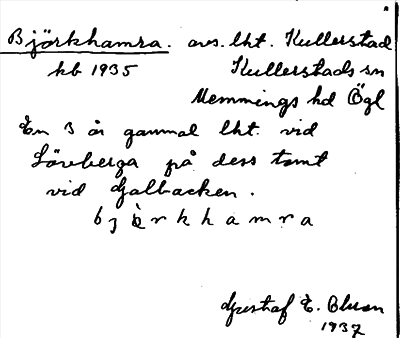 Björkhamra. avs. lht. Kullerstad
kb 1935 Kullerstads sn
Memmings hd Ögl
En 3 år gammal lht. vid
Löveberga på dess tomt
vid Galbacken.
b j ö r k h a m r a
Gustaf E. Bluun
1937